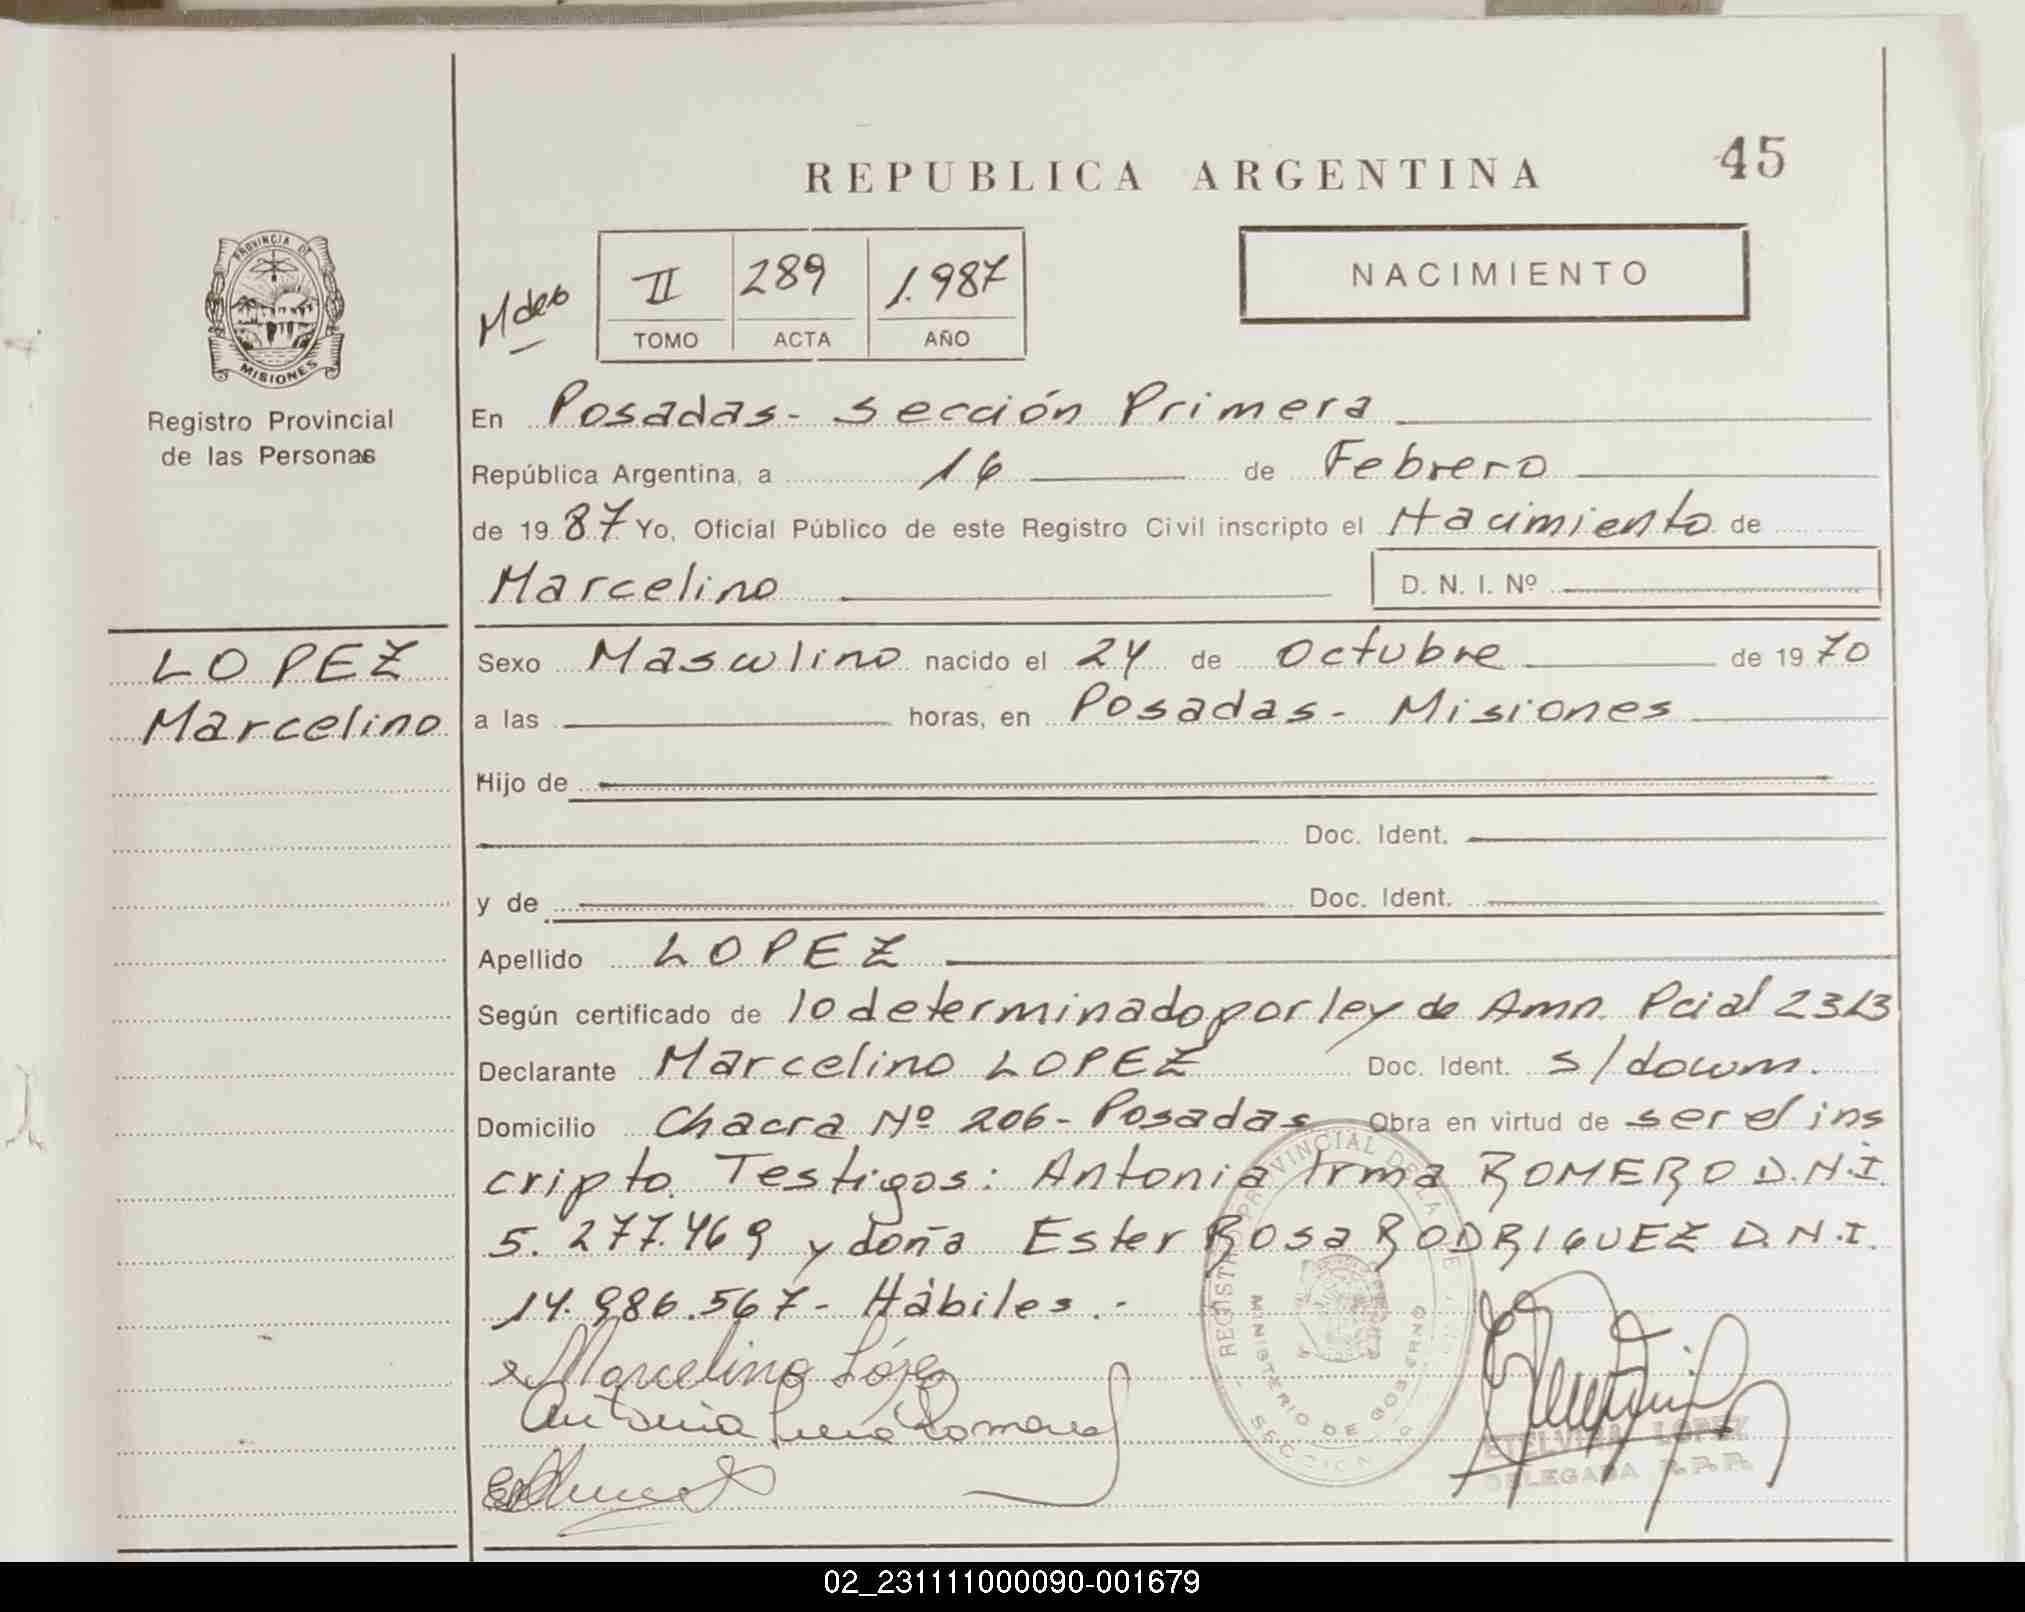 REPUBLICA ARGENTINA
45
PROVINCIA DE
MISIONES
Registro Provincial
de las Personas
II 289 1.987
TOMO ACTA AÑO
NACIMIENTO
En Posadas - Sección Primera
República Argentina, a 16 de Febrero
de 1987 Yo, Oficial Público de este Registro Civil inscripto el Nacimiento de
Marcelino D. N. I. Nº
LOPEZ
Marcelino
Sexo Masculino nacido el 24 de Octubre de 1970
a las horas, en Posadas - Misiones
Hijo de
Doc. Ident.
y de Doc. Ident.
Apellido LOPEZ
Según certificado de lo determinado por ley de Amn. Pcial 2313
Declarante Marcelino LOPEZ Doc. Ident. s/docum.
Domicilio Chacra Nº 206 - Posadas Obra en virtud de ser el ins
cripto. Testigos: Antonia Irma ROMERO D.N.I.
5.277.469 y doña Ester Rosa RODRIGUEZ D.N.I.
14.986.567 - Hábiles.-
Marcelino López
REGISTRO PROVINCIAL DE LA
MINISTERIO DE GOBIERNO
SECCION
ETELVINA LOPEZ
DELEGADA
02_231111000090-001679